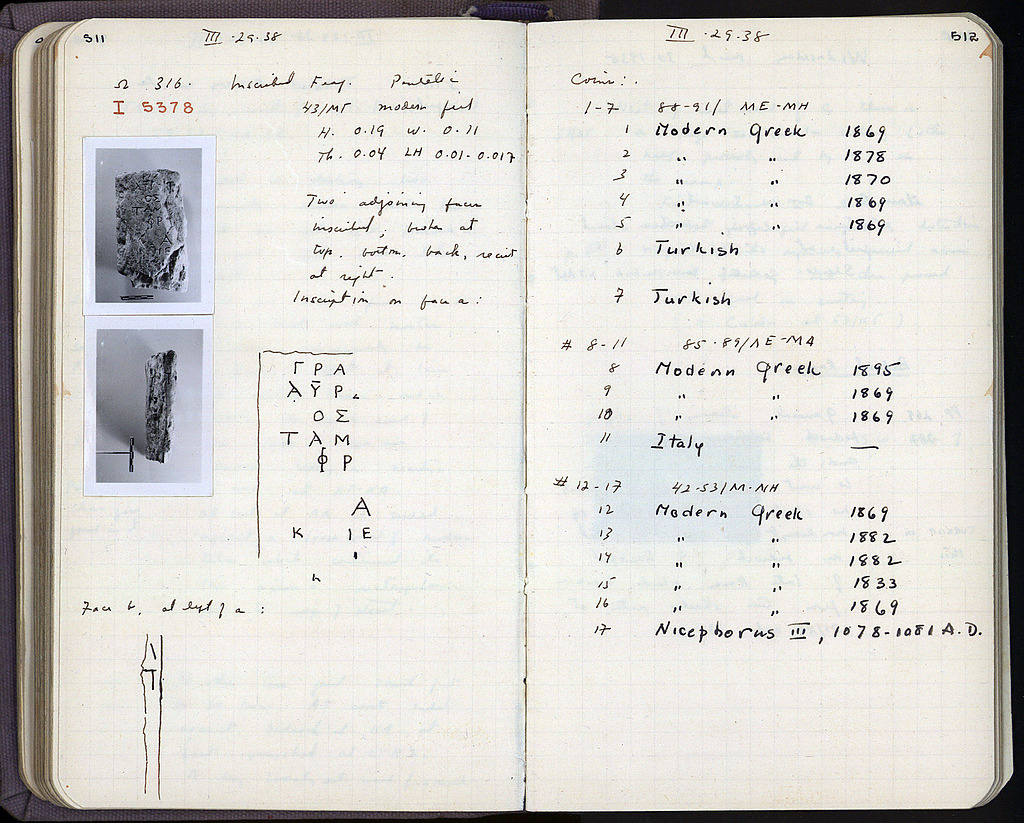 511
III · 29 · 38
Ω 316. Inscribed Frag. Pentelic
I 5378
43/ΜΓ modern fill
H. 0.19 W. 0.11
Th. 0.04 LH 0.01-0.017
Two adjoining faces
inscribed; broken at
top, bottom, back,
at right.
Inscription on face a:
ΓΡΑ
ΑΥΡ
ΟΣ
ΤΑΜ
ΦΡ
Α
Κ ΙΕ
Face b, at left of a:
Τ
III · 29 · 38
512
Coins:
1-7 88-91/ ΜΕ-ΜΗ
1 Modern Greek 1869
2 " " 1878
3 " " 1870
4 " " 1869
5 " " 1869
6 Turkish
7 Turkish
# 8-11 85-89/ΛΕ-ΜΔ
8 Modern Greek 1895
9 " " 1869
10 " " 1869
11 Italy —
# 12-17 42-53/Μ-ΝΗ
12 Modern Greek 1869
13 " " 1882
14 " " 1882
15 " " 1833
16 " " 1869
17 Nicephorus III, 1078-1081 A.D.